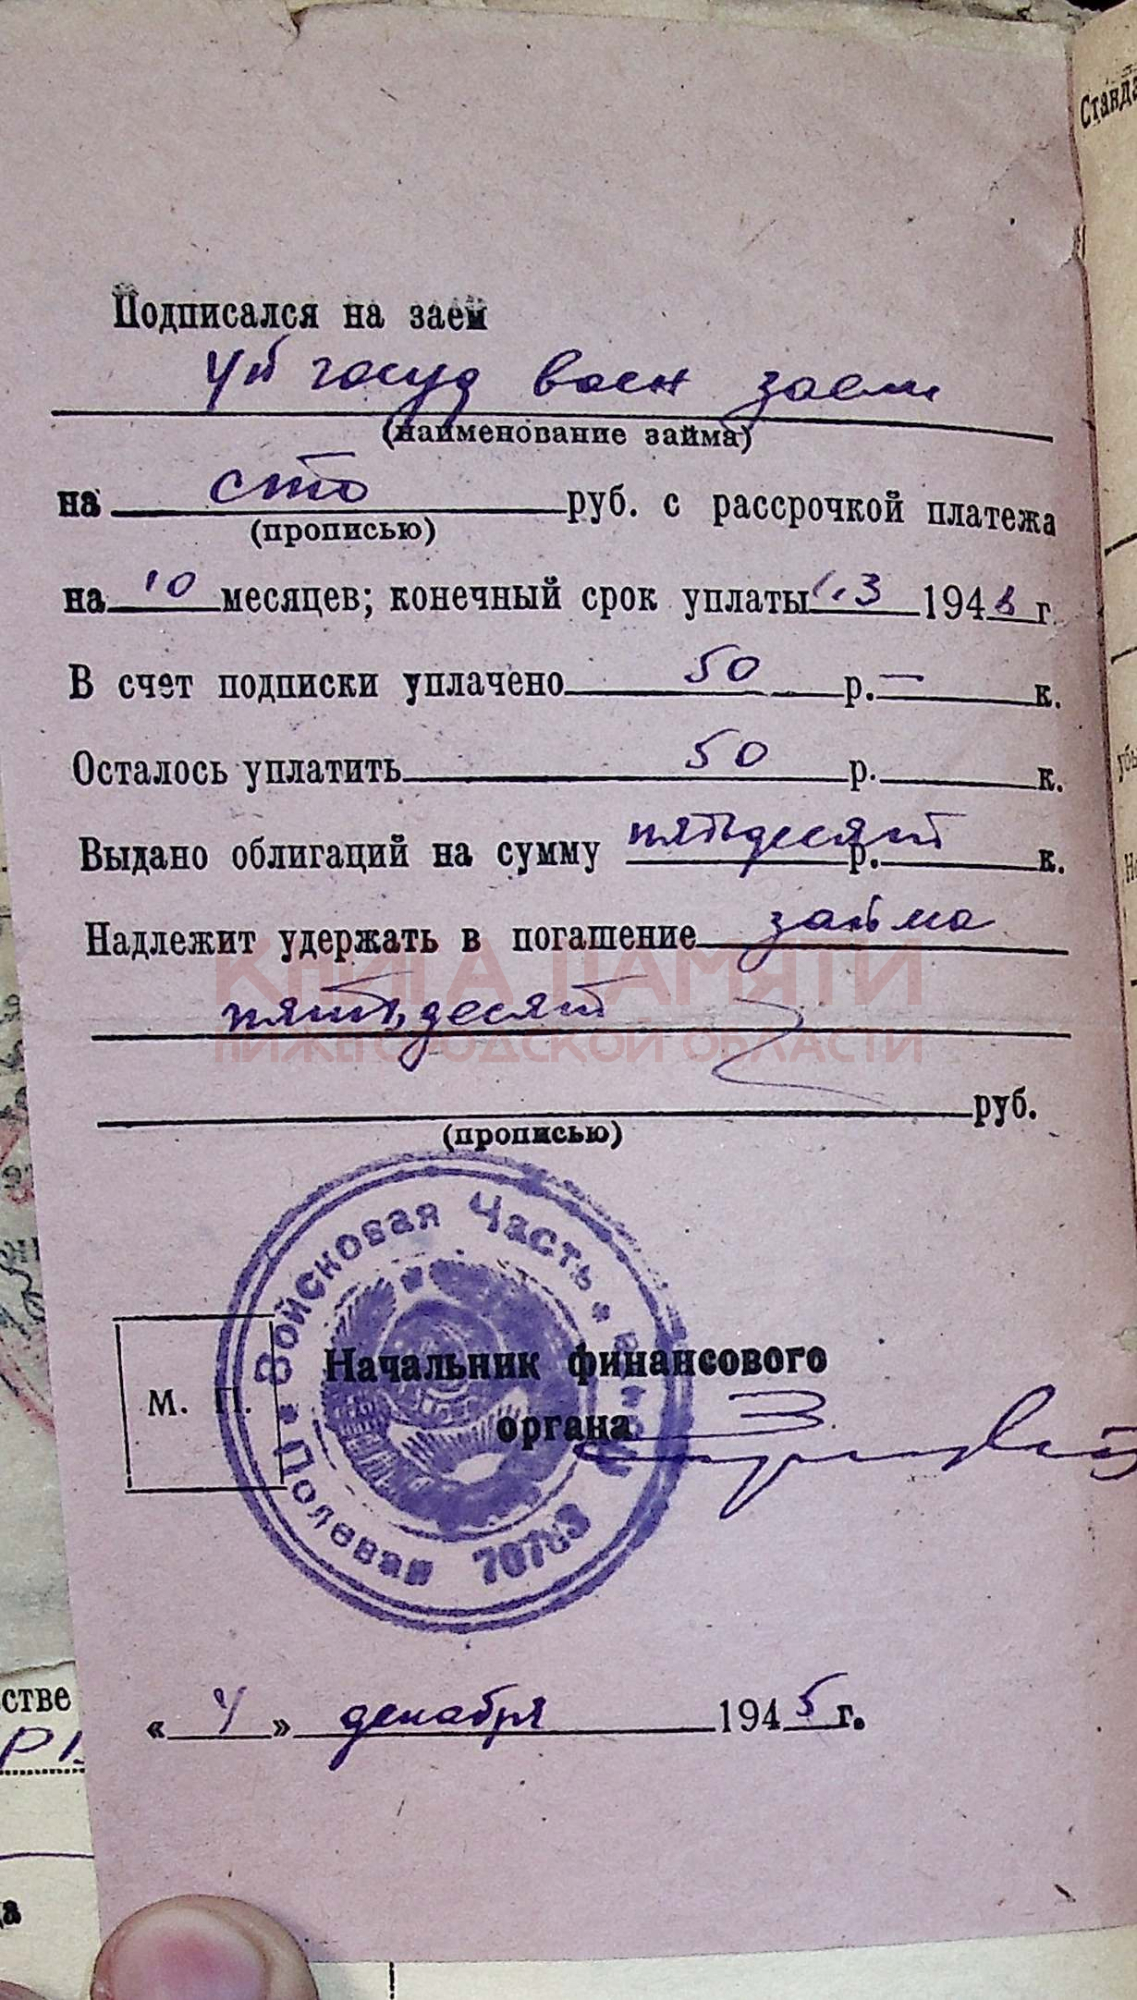 Станда
Подписался на заем
4й госуд воен заем
(наименование займа)
на сто руб. с рассрочкой платежа
(прописью)
на 10 месяцев; конечный срок уплаты 1.3 194 г.
В счет подписки уплачено 50 р. — к.
Осталось уплатить 50 р. к.
Выдано облигаций на сумму пятьдесят р. к.
Надлежит удержать в погашение займа
КНИГА ПАМЯТИ
пятьдесят
НИЖЕГОРОДСКОЙ ОБЛАСТИ
руб.
(прописью)
Войсковая Часть
Полевая
М. П.
Начальник финансового
органа
« 4 » декабря 1945 г.
стве